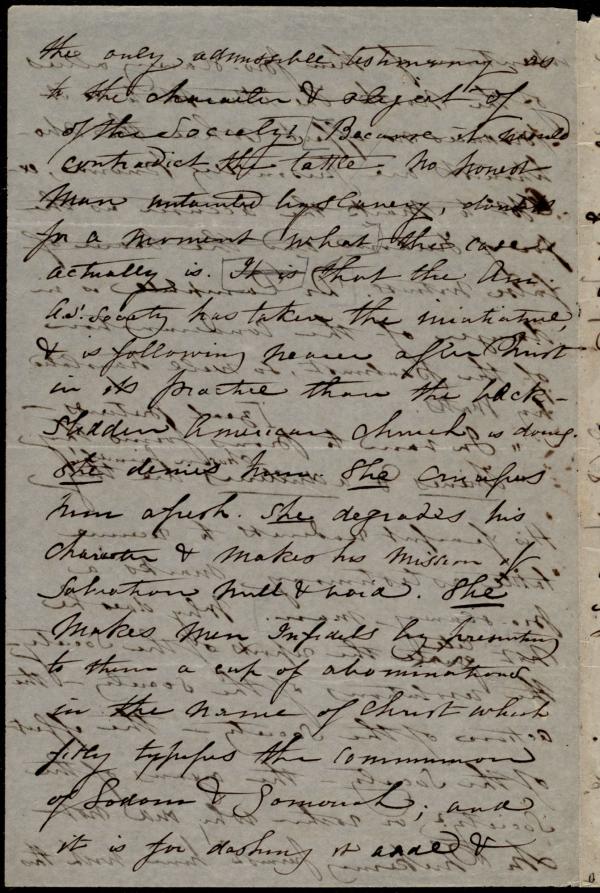 the only admissible testimony as
to the character & object of
of the Society! Because it would
contradict the tattle. No honest
man untainted by slavery, doubts
for a moment what the case
actually is. It is that the Am.
As. Society has taken the iniatiative,
& is following nearer after Christ
in its practice than the back-
slidden American church is doing.
She denies him. She crucifies
him afresh. She degrades his
character & makes his mission of
Salvation null & void. She
makes men Infidels by presenting
to them a cup of abominations
in the name of Christ which
fitly typefies the communion
of Sodom & Gomorah; and
it is for dashing it &